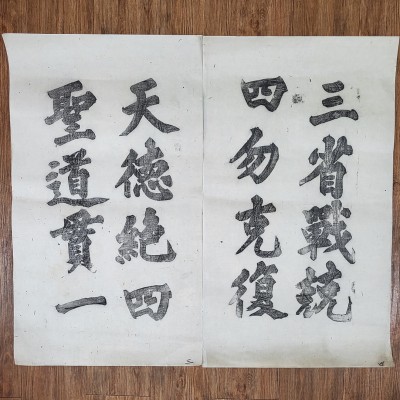 三省戰兢
四勿克復
天德絶四
聖道貫一